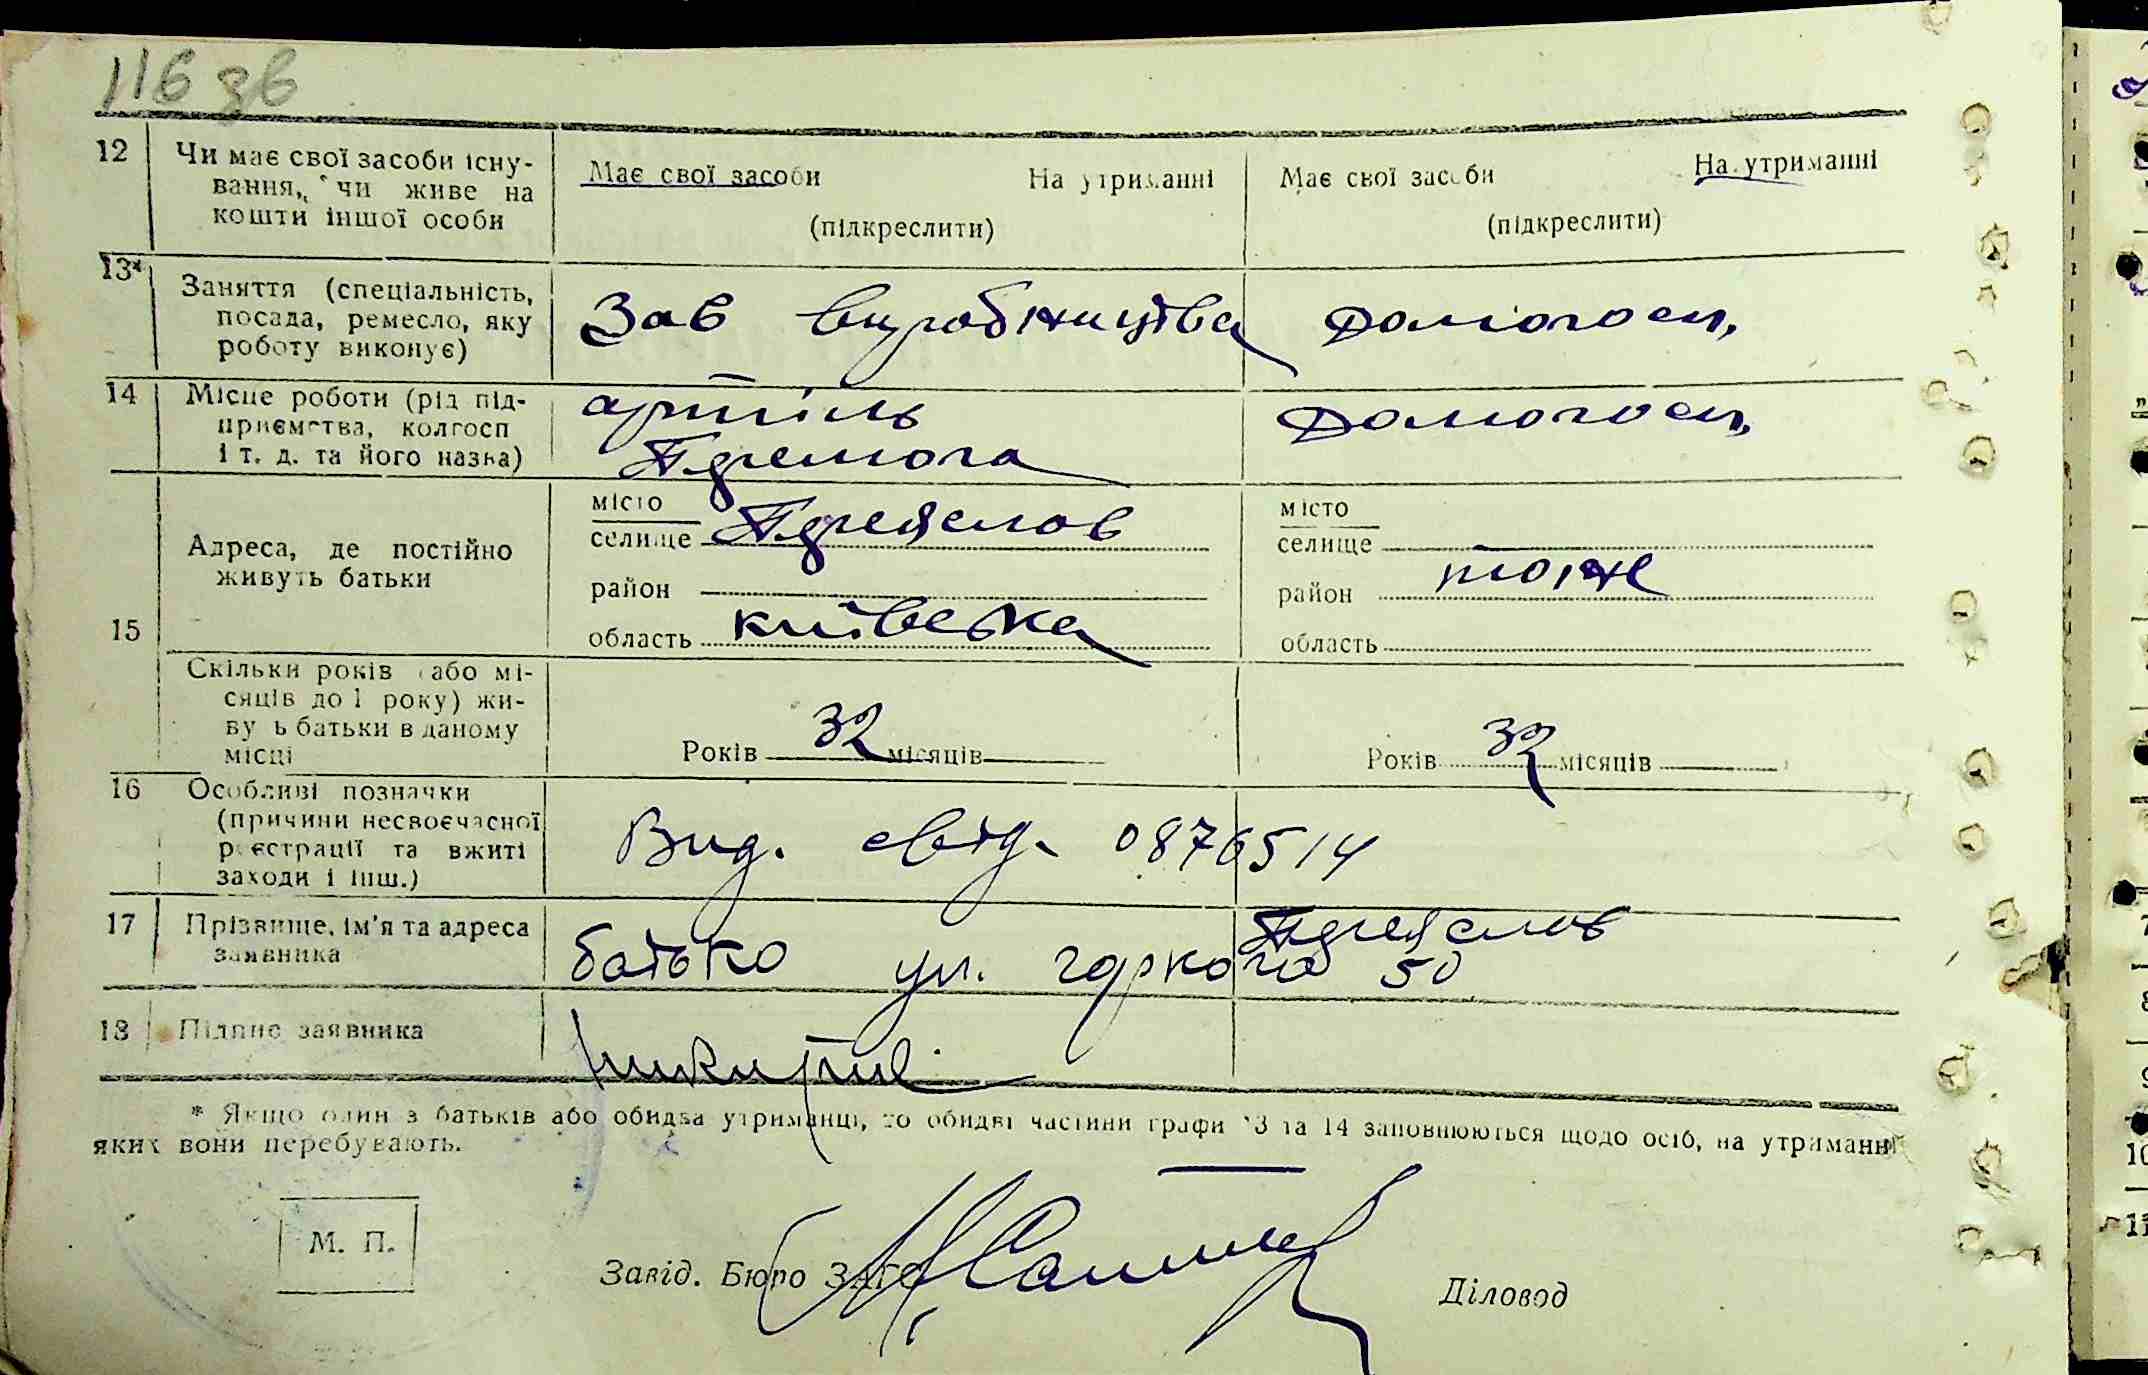 116 зв
12 Чи має свої засоби існу-
вання, чи живе на
кошти іншої особи
Має свої засоби На утриманні
(підкреслити)
Має свої засоби На утриманні
(підкреслити)
13* Заняття (спеціальність,
посада, ремесло, яку
роботу виконує)
Зав виробництва
Домогосп.
14 Місце роботи (рід під-
приємства, колгосп
і т. д. та його назва)
артіль
Перемога
Домогосп.
15 Адреса, де постійно
живуть батьки
місто
селище Переяслов
район
область київська
місто
селище
район тож
область
Скільки років (або мі-
сяців до 1 року) жи-
ву ь батьки в даному
місці
Років 32 місяців
Років 32 місяців
16 Особливі позначки
(причини несвоєчасної
реєстрації та вжиті
заходи і інш.)
Вид. свід. 0876514
17 Прізвище, ім'я та адреса
заявника
Переяслов
батько ул. горкого 50
18 Підпис заявника
* Якщо один з батьків або обидва утриманці, то обидві частини графи 13 та 14 заповнюються щодо осіб, на утриманні
яких вони перебувають.
М. П.
Завід. Бюро ЗАГС
Діловод